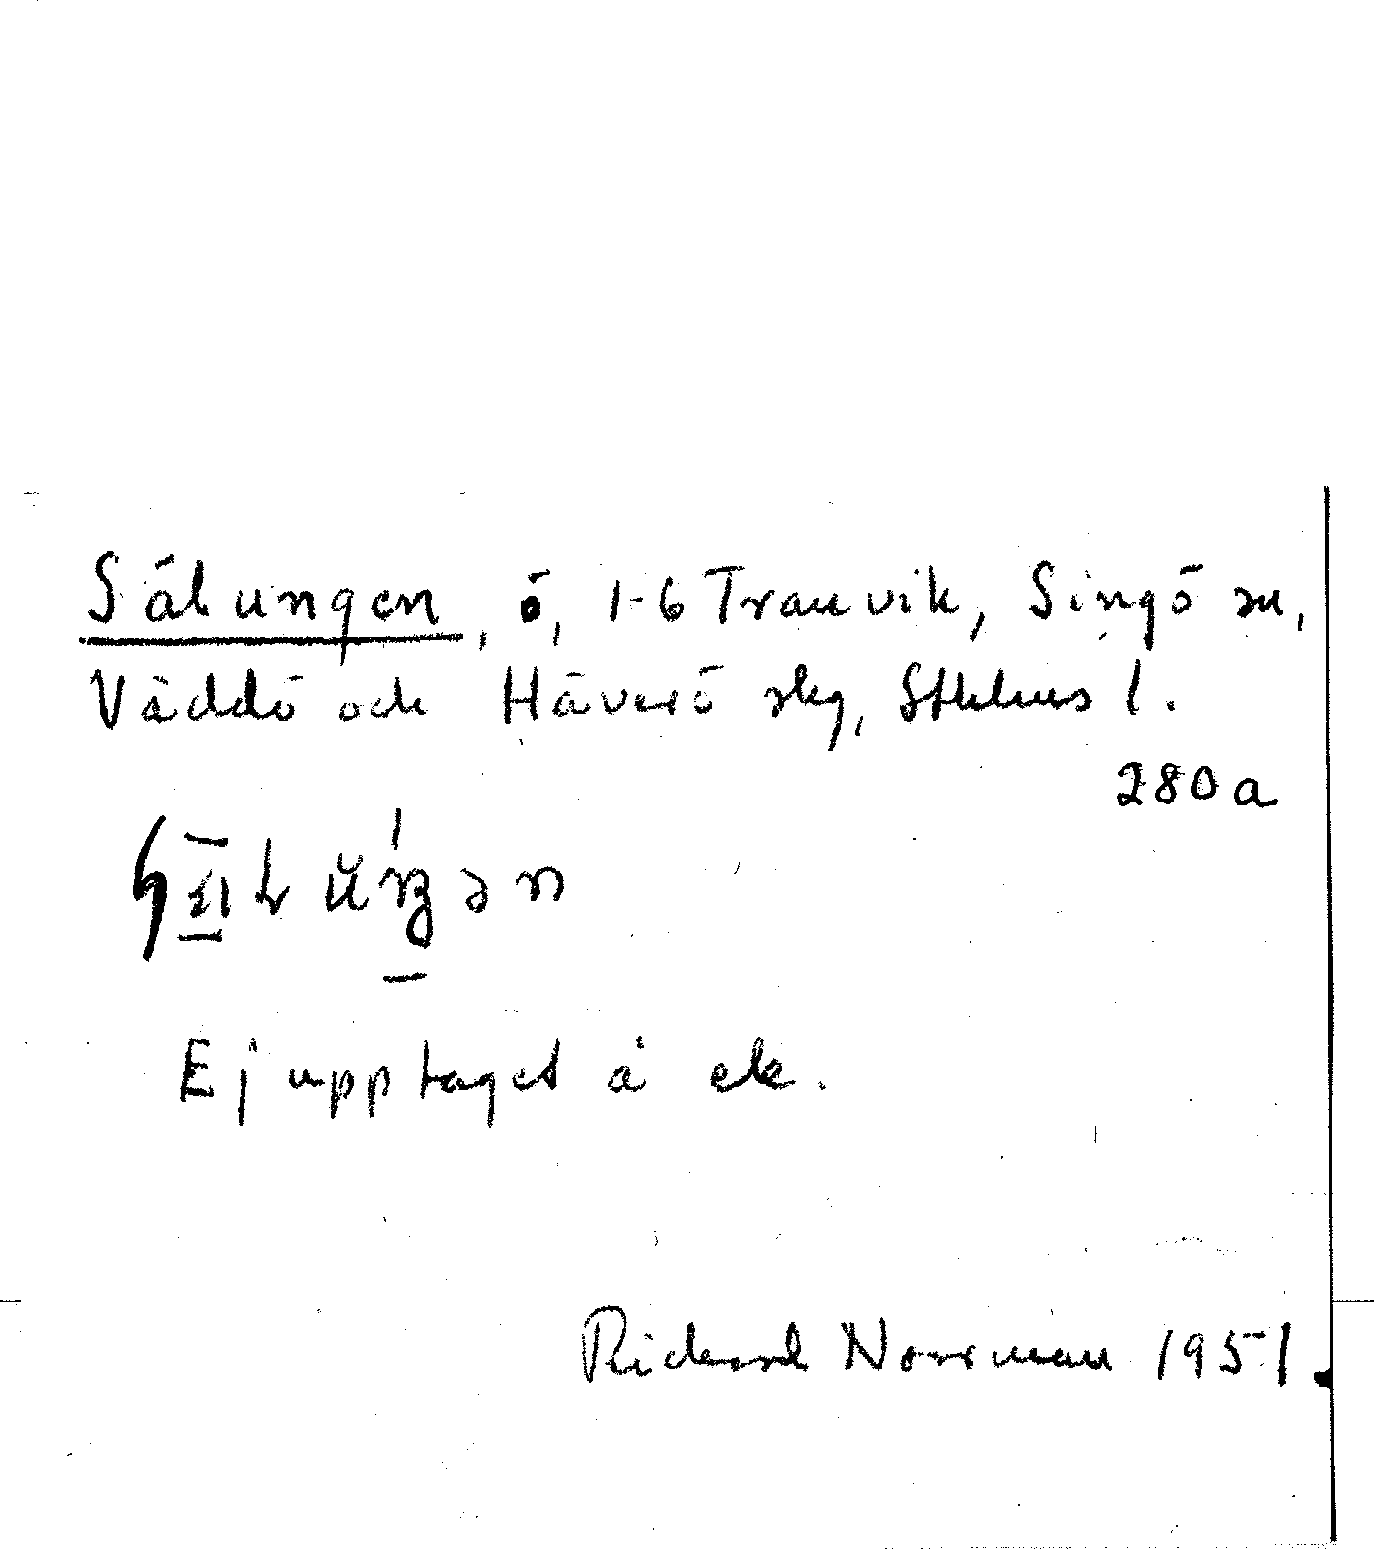 Sälungen, ö, 1-6 Tranvik, Singö sn,
Väddö och Häverö skg, Sthlms l.
280a
Ej upptaget å ek.
Rickard Norrman 1951.